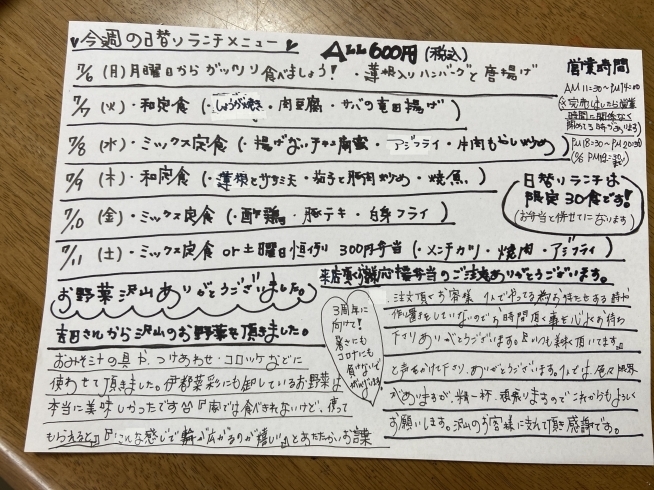 今週の日替りランチメニュー
ALL600円(税込)
7/6(月)月曜日からガッツリ食べましょう!・蓮根入りハンバーグと唐揚げ
7/7(火)・和定食(・しょうが焼き・肉豆腐・サバの竜田揚げ)
7/8(水)・ミックス定食(・揚げないチキン南蛮・アジフライ・牛肉もやし炒め)
7/9(木)・和定食(・蓮根とササミ天・茄子と豚肉炒め・焼魚)
7/10(金)・ミックス定食(・油淋鶏・豚テキ・白身フライ)
7/11(土)・ミックス定食or土曜日恒例300円弁当(・メンチカツ・焼肉・アジフライ)
営業時間
AM11:30~PM14:00
(※完売しましたら営業
時間に関係なく
閉めてる時があります)
PM18:30~PM20:30
日替りランチは
限定30食です!
(お弁当と併せてになります)
お野菜沢山ありがとうございました。
吉田さんから沢山のお野菜を頂きました。
おみそ汁の具や、つけあわせ・コロッケなどに
使わせて頂きました。伊都菜彩にも卸しているお野菜は
本当に美味しかったです
もらえると』『こんな感じで輪が広がるのが嬉しい』とあたたかいお言葉
3周年に
向けて!
暑さにも
コロナにも
負けないで
がんばります
ご注文ありがとうございます。
注文頂くお客様 1人でやってる為お待たせする時や
作り置きをしていないのでお時間頂く事を心よくお待ち
下さりありがとうございます。『いつも美味く頂いてます。』
と声をかけて下さり、ありがとうございます。1人では色々限界
がありますが、精一杯、頑張りますのでこれからもよろしく
お願いします。沢山のお客様に支えれて頂き感謝です。